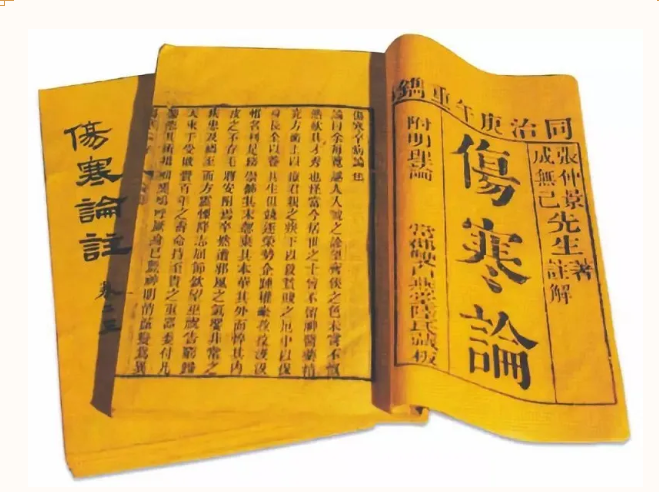 同治庚午重鐫
張仲景先生著
成無己註解
傷寒論
附明理論
當湖雙白燕堂陸氏藏板
傷寒卒病論集
論曰余每覽越人入虢之診望齊侯之色未嘗不慨
然歎其才秀也怪當今居世之士曾不留神醫藥精
究方術上以療君親之疾下以救貧賤之厄中以保
身長全以養其生但競逐榮勢企踵權豪孜孜汲汲
惟名利是務崇飾其末忽棄其本華其外而悴其內
皮之不存毛將安附焉卒然遭邪風之氣嬰非常之
疾患及禍至而方震慄降志屈節欽望巫祝告窮歸
天束手受敗賫百年之壽命持至貴之重器委付凡
醫恣其所措咄嗟嗚呼厥身已斃神明消滅變為異
傷寒論註
卷二三